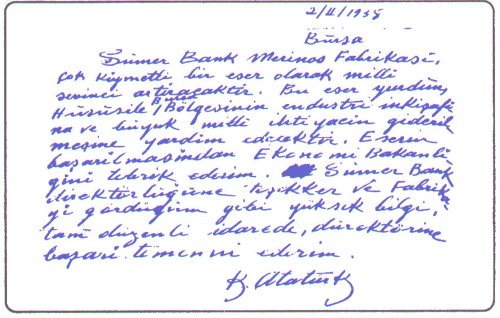 2/II/1938
Bursa
Sümer Bank Merinos Fabrikası,
çok kıymetli bir eser olarak milli
sevinci artıracaktır. Bu eser yurdun,
Hususile Bursa Bölgesinin endüstri inkişafı
na ve büyük milli ihtiyacın gideril
mesine yardım edecektir. Eserin
başarılmasından Ekonomi Bakanlı
ğını tebrik ederim. Sümer Bank
direktörlüğüne teşekkür ve Fabrika
yı gördüğüm gibi yüksek bilgi,
tam düzenli idarede, direktörüne
başarı temenni ederim.
K. Atatürk